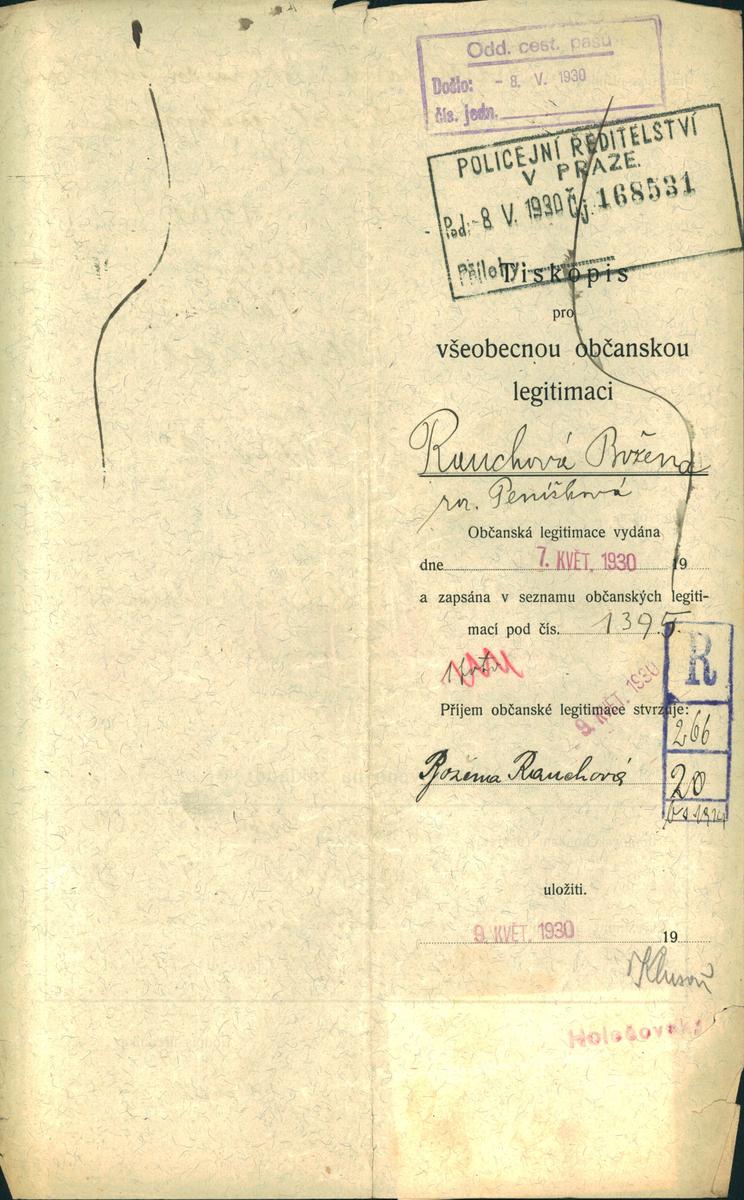 Odd. cest. pasů
Došlo: - 8. V. 1930
čís. jedn.
POLICEJNÍ ŘEDITELSTVÍ
V PRAZE.
Pod: - 8 V. 1930 Čj. 168531
Přílohy:
Tiskopis
pro
všeobecnou občanskou
legitimaci
Rauchová Božena
roz. Peníšková
Občanská legitimace vydána
dne 7. KVĚT. 1930 19
a zapsána v seznamu občanských legiti-
mací pod čís. 1395.
9. KVĚT. 1930
R
Příjem občanské legitimace stvrzuje:
266
Božena Rauchová
20
uložiti.
9. KVĚT. 1930 19
Holešovská